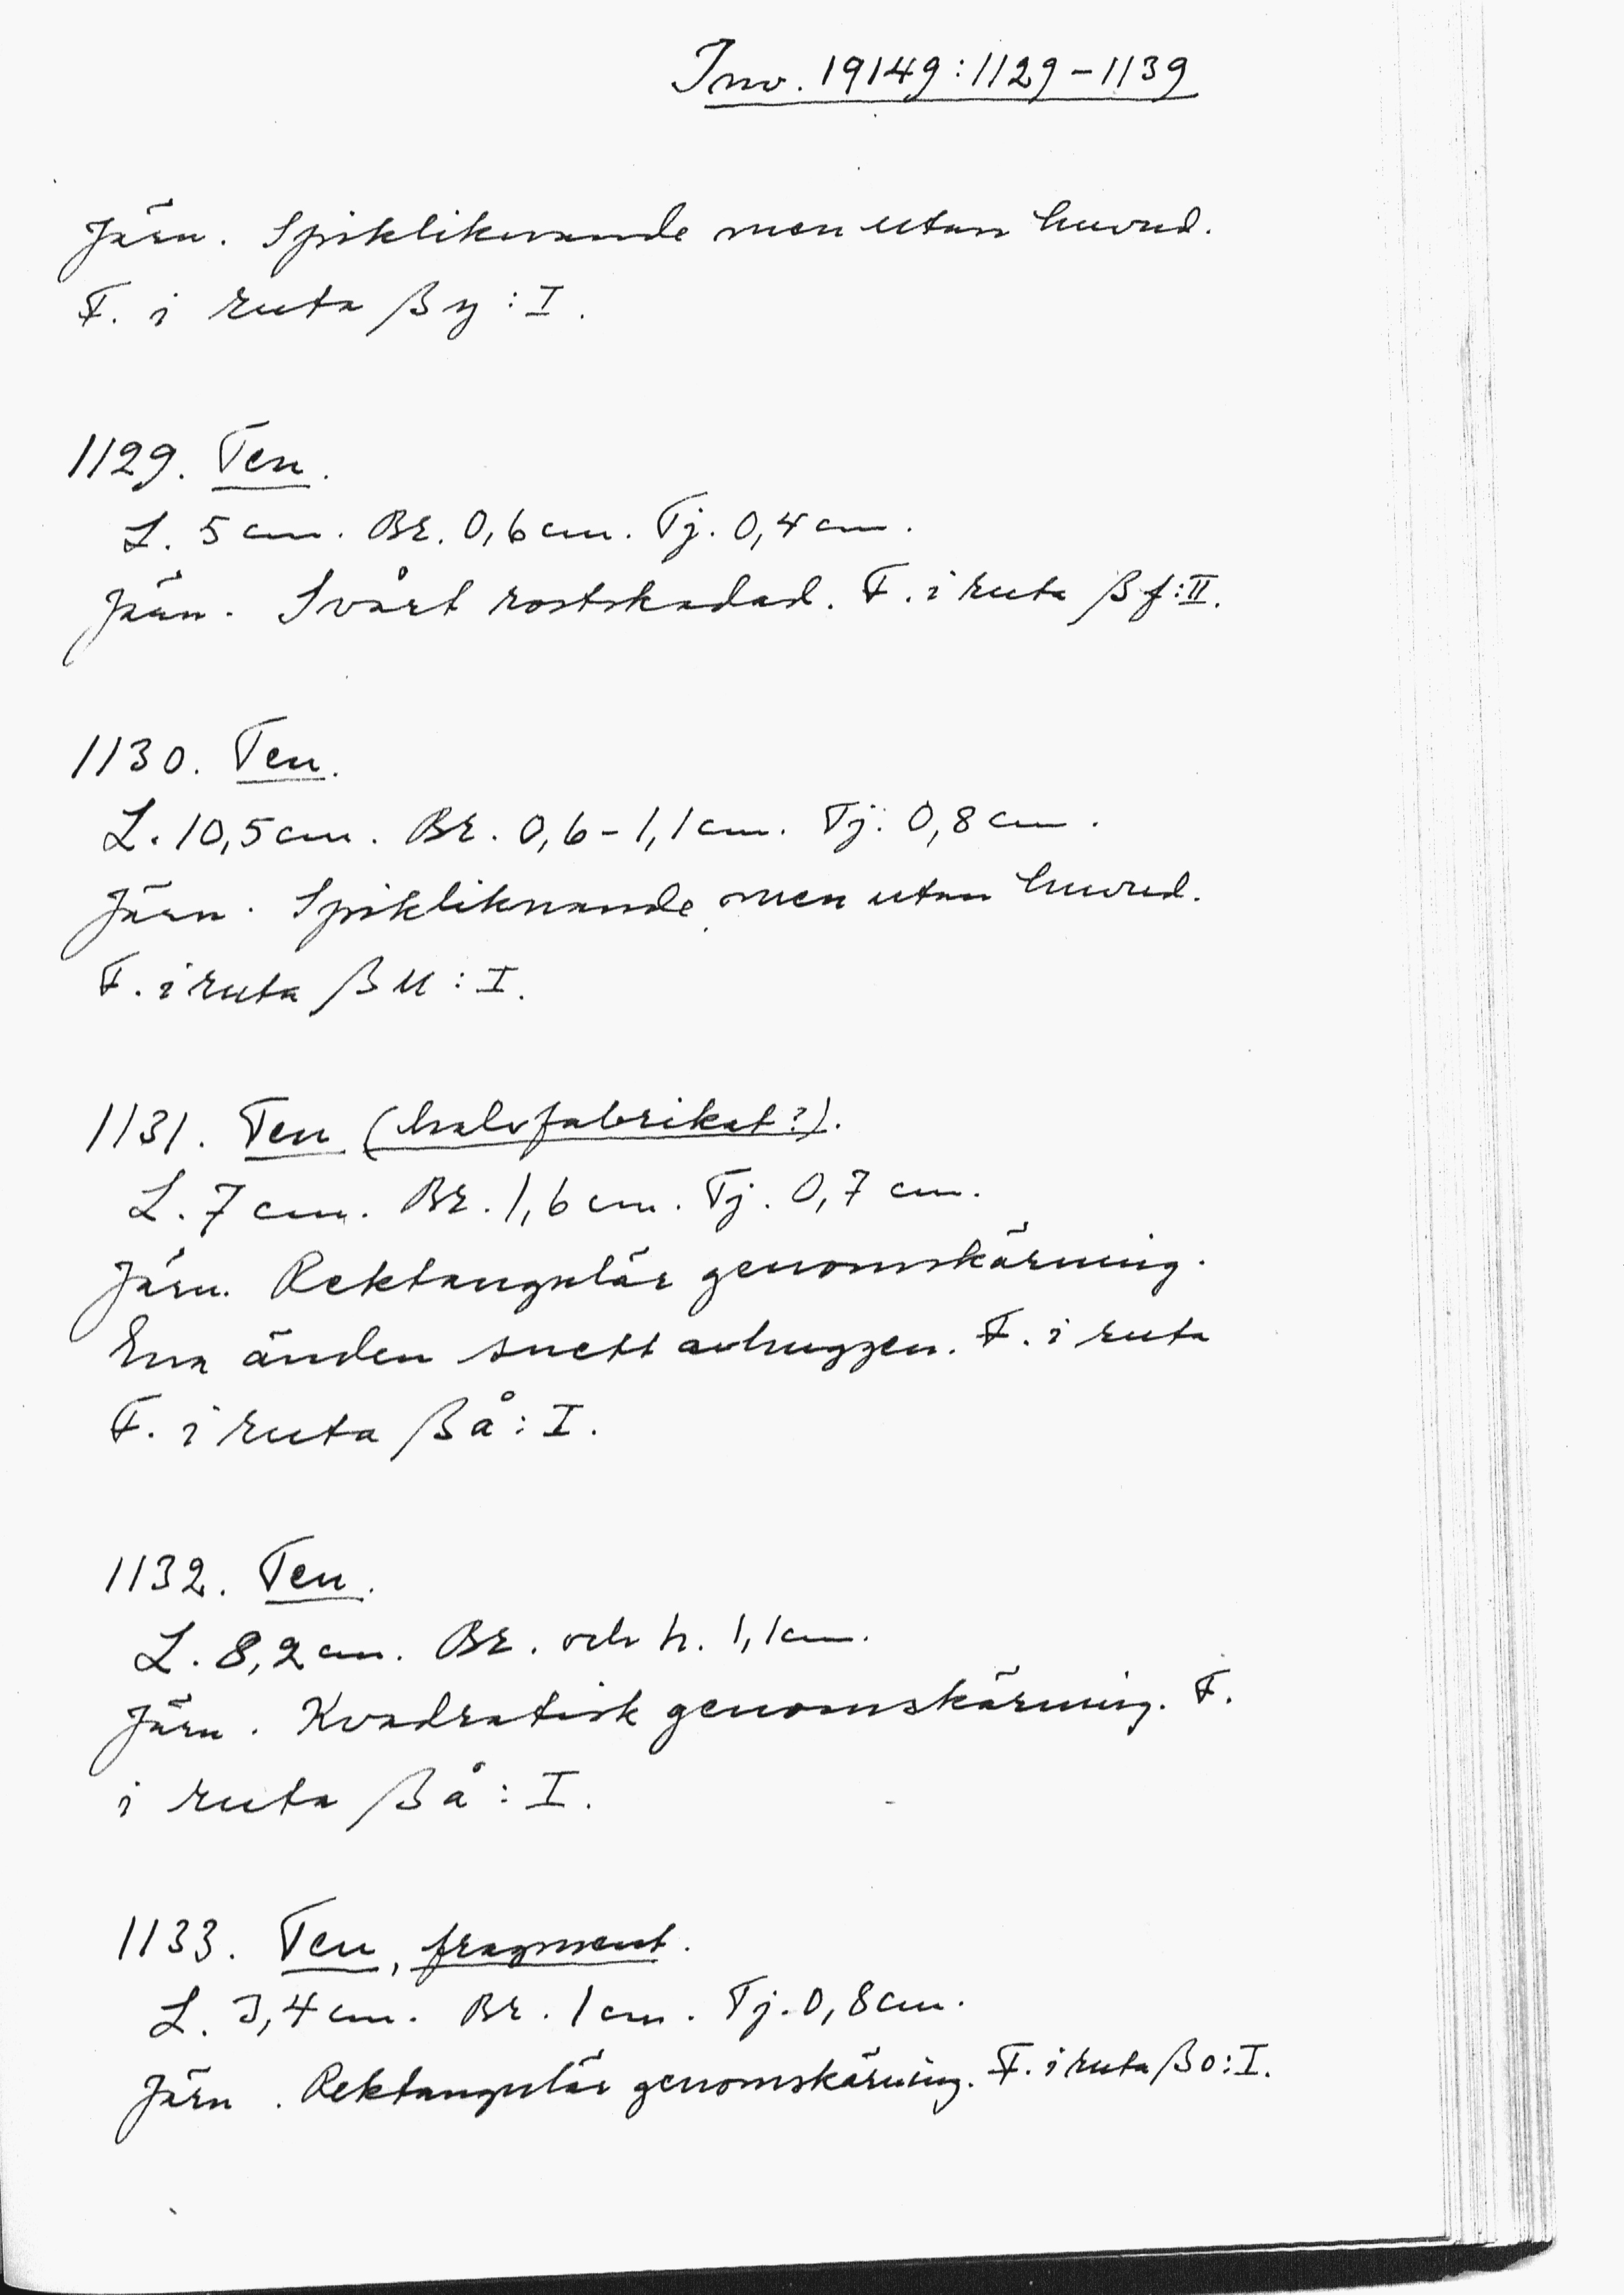 Inv. 19149:1129-1139
Järn. Spikliknande men utan huvud.
F. i ruta βy:I.
1129. Ten.
L. 5 cm. Br. 0,6 cm. Tj. 0,4 cm.
Järn. Svårt rostskadad. F. i ruta βf:II.
1130. Ten.
L. 10,5 cm. Br. 0,6-1,1 cm. Tj. 0,8 cm.
Järn. Spikliknande men utan huvud.
F. i ruta βu:I.
1131. Ten (halvfabrikat?).
L. 7 cm. Br. 1,6 cm. Tj. 0,7 cm.
Järn. Rektangulär genomskärning.
Ena änden snett avhuggen. F. i ruta
F. i ruta βå:I.
1132. Ten.
L. 8,2 cm. Br. och h. 1,1 cm.
Järn. Kvadratisk genomskärning. F.
i ruta βå:I.
1133. Ten, fragment.
L. 3,4 cm. Br. 1 cm. Tj. 0,8 cm.
Järn. Rektangulär genomskärning. F. i ruta βo:I.